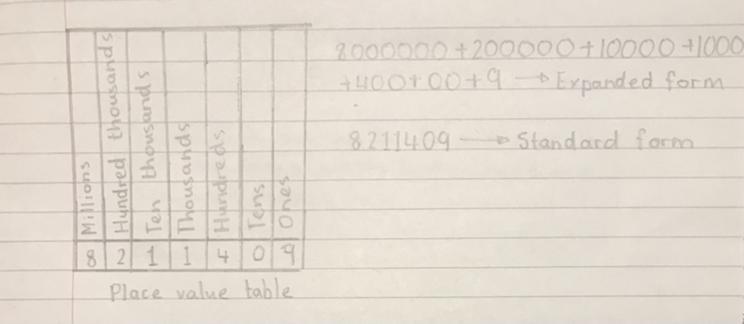 Millions
Hundred thousands
Ten thousands
Thousands
Hundreds
Tens
Ones
8 2 1 1 4 0 9
Place value table
8000000+200000+10000+1000
+400+00+9 → Expanded form
8211409 → Standard form